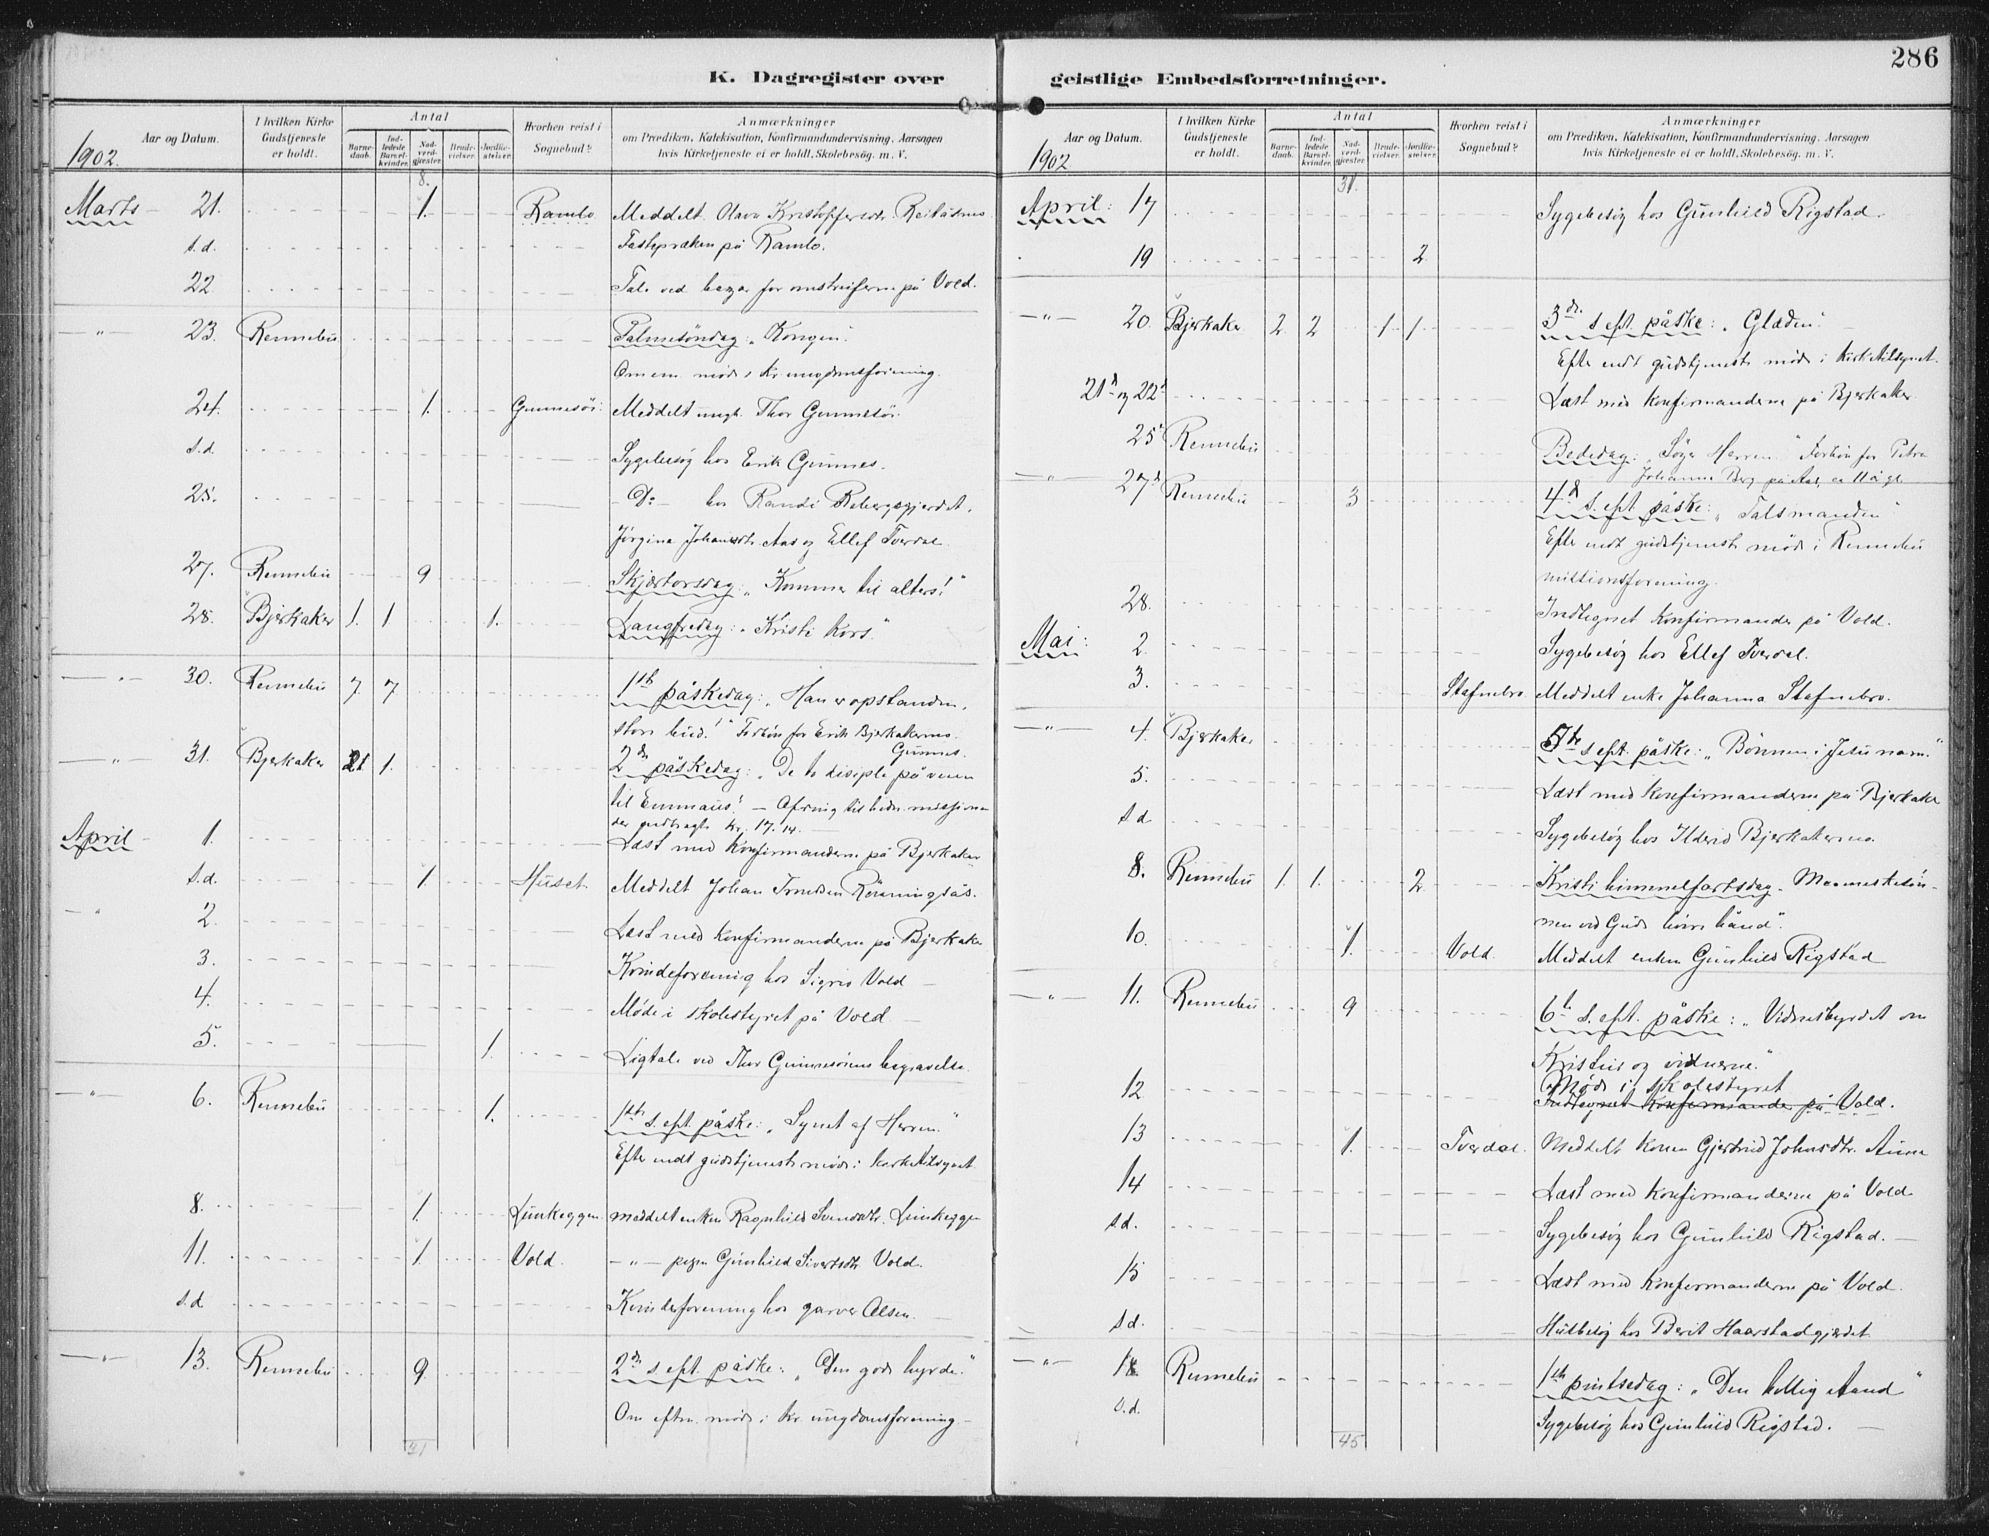 286
K. Dagregister over
geistlige Embedsforretninger.
Aar og Datum.
1902.
I hvilken Kirke Gudstjeneste er holdt.
Antal
Barnedaab. Indledede Barselkvinder. Nadverdgjester. Brudevielser. Jordfæstelser.
Hvorhen reist i Sognebud?
Anmærkninger
om Prædiken, Katekisation, Konfirmandundervisning, Aarsagen
hvis Kirketjeneste ei er holdt, Skolebesøg. m. V.
8.
Marts 21. 1. Ramlo Meddelt Olava Kristoffersdt.
s.d. Fastepræken på Ramlo.
22 Tale ved bazar for på Vold.
" 23. Rennebu Palmesöndag: "Kongen."
Om em. møde i Kr. ungdomsforening.
24. 1. Gunnesös. Meddelt ungk. Thor Gunnesös.
s.d. Sygebesøg hos Erik Gunnes.
25. - Do - hos Randi
Jørgina Johansdt. Aas og Ellef Tverdal
27. Rennebu 9 Skjærtorsdag: "Kommer til alters!"
28. Bjerkaker 1. 1. 1. Langfredag: "Kristi Kors."
" 30. Rennebu 7 7 1ste påskedag: "Han er opstanden,
store bud!" Forbön for Erik Bjerkakermo.
Gunnes.
" 31. Bjerkaker 1 1. 2den påskedag: "De to disiple på veien
til Emmaus" - Ofring til hedn. missionen
der indbragte kr. 17.14.
April 1. Læst med konfirmanderne på Bjerkaker
s.d. 1. Huset. Meddelt Johan Rönningsås.
" 2. Læst med konfirmanderne på Bjerkaker
3. Kvindeforening hos Sigrid Vold
4. Møde i skolestyret på Vold
5. 1. Ligtale ved Thor Gunnesösens begravelse.
" 6. Rennebu 1. 1ste s. eft. påske: "Synet af Herren."
Efter endt gudstjeneste møde i kirketilsynet.
8. 1. Lunkeggen meddelt enken Ragnhild Svendsdtr. Lunkeggen
11. 1. Vold. - " - pigen Gunhild Sivertsdtr Vold.
s.d Kvindeforening hos garver Olsen.
" 13. Rennebu 9 2den s. eft. påske: "Den gode hyrde."
Om eftm. møde i kr. ungdomsforening -
31
Aar og Datum.
1902
I hvilken Kirke Gudstjeneste er holdt.
Antal
Barnedaab. Indledede Barselkvinder. Nadverdgjester. Brudevielser. Jordfæstelser.
Hvorhen reist i Sognebud?
Anmærkninger
om Prædiken, Katekisation, Konfirmandundervisning, Aarsagen
hvis Kirketjeneste ei er holdt, Skolebesøg. m. V.
31.
April: 17 Sygebesøg hos Gunhild Rigstad.
19 2
" 20. Bjerkaker 2 2 1 1 3die s. eft. påske: "Glæden."
Efter endt gudstjeneste møde i kirketilsynet.
21de og 22de Læst med konfirmanderne på Bjerkaker.
25 Rennebu Bededag: "Søger Herren" Forbön for Petra
Johanna Berg på Aas,
" 27de Rennebu 3 4de s. eft. påske: "Talsmanden"
Efter endt gudstjeneste møde i Rennebu
missionsforening.
28. Indtegnet konfirmander på Vold.
Mai: 2. Sygebesøg hos Ellef Tverdal.
3. Stafnebro Meddelt enke Johanna Stafnebro.
" 4. Bjerkaker 5te s. eft. påske: "Bönnen i Jesu navn."
5. Læst med konfirmanderne på Bjerkaker
s.d Sygebesøg hos Ilderid Bjerkakermo.
8. Rennebu 1. 1. 2 Kristi himmelfartsdag. Menneskesön-
nen ved Guds høire hånd".
10. 1. Vold. Meddelt enken Gunhild Rigstad
" 11. Rennebu 9 6te s. eft. påske: "Vidnesbyrdet om
Kristus og vidnerne."
12 Møde i skolestyret
Indtegnet konfirmander på Vold.
13 1. Tverdal. Meddelt konen Gjertrud Johnsdtr. Aune
14 Læst med konfirmanderne på Vold
s.d. Sygebesøg hos Gunhild Rigstad.
15 Læst med konfirmanderne på Vold.
s.d. Husbesøg hos Berit Haarstadgjærdet
" 18 Rennebu 1ste pintsedag: "Den hellig Aand"
s.d. Sygebesøg hos Gunhild Rigstad.
45